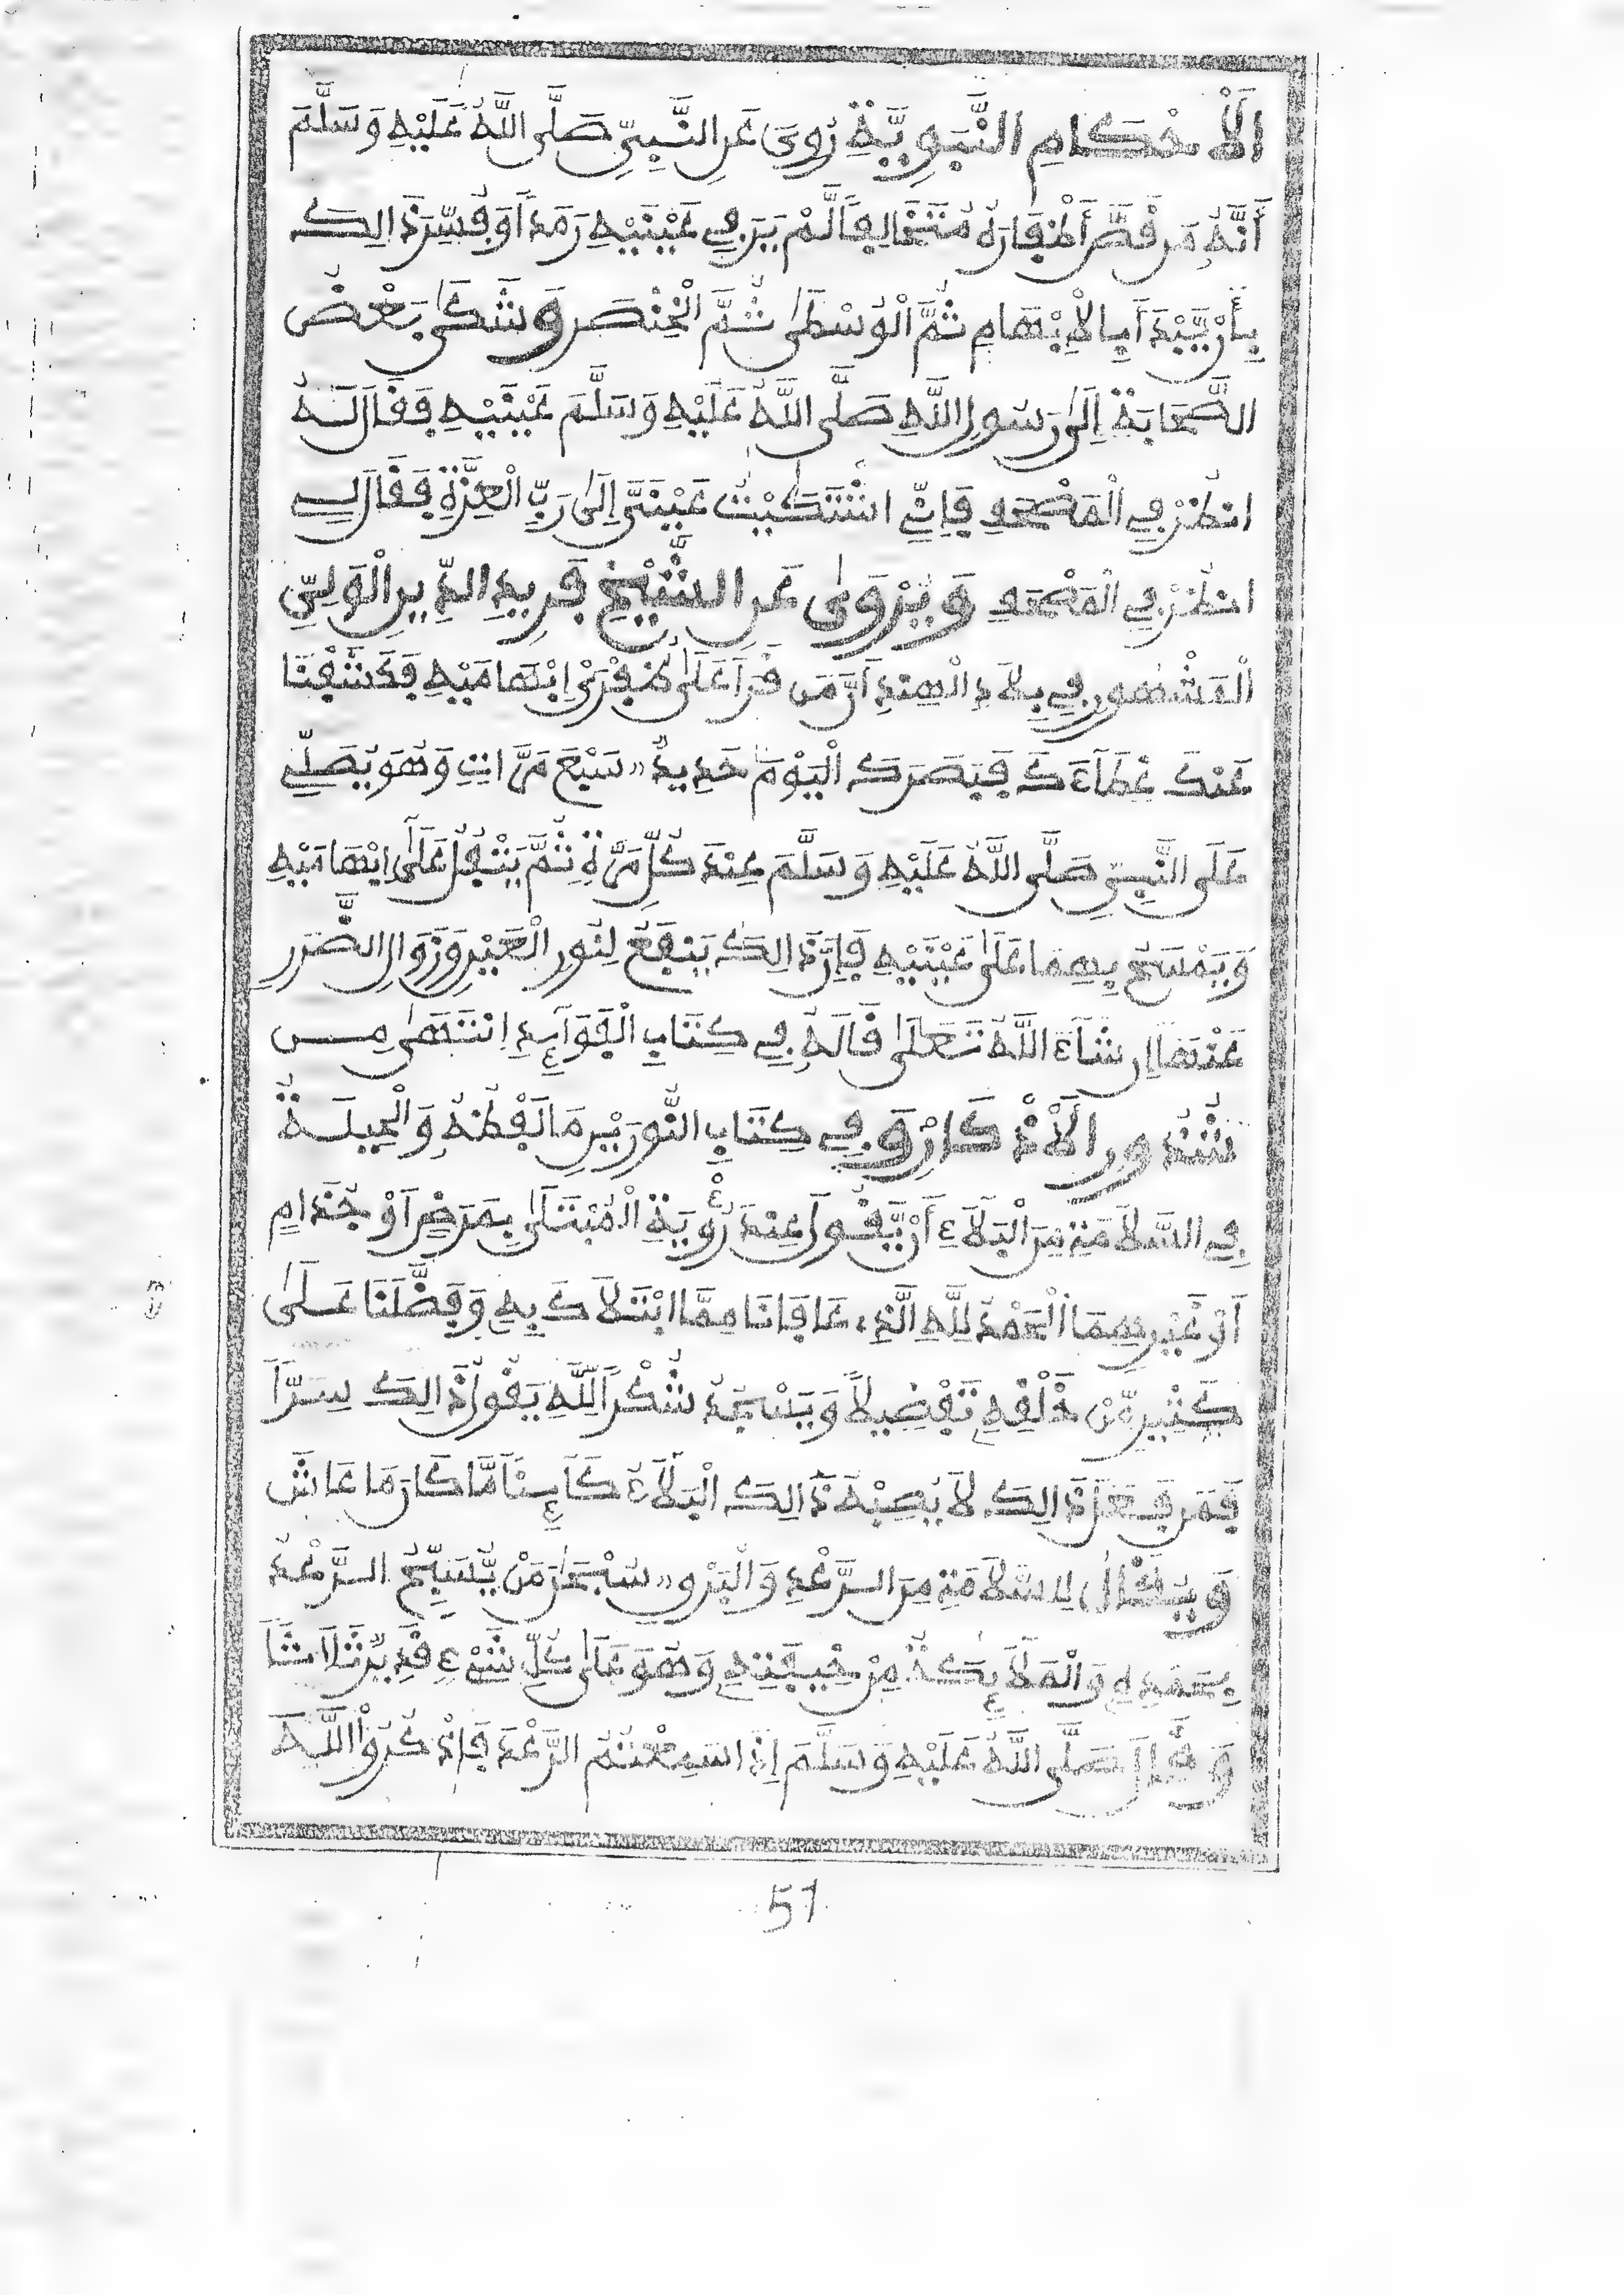 اَلْأَحْكَامِ النَّبَوِيَّةِ رُوِيَ عَنِ النَّبِيِّ صَلَّى اللَّهُ عَلَيْهِ وَسَلَّمَ
أَنَّهُ مَن قَصَّ أَظْفَارَهُ مُتَخَالِفاً لَّمْ يَرَ فِي عَيْنَيْهِ رَمَدًا وَفُسِّرَ ذَالِكَ
بِأَنْ يَّبْدَأَ بِالْإِبْهَامِ ثُمَّ الْوُسْطَىٰ ثُمَّ الْخِنْصَرِ وَشَكَىٰ بَعْضُ
الصَّحَابَةِ إِلَىٰ رَسُولِ اللَّهِ صَلَّى اللَّهُ عَلَيْهِ وَسَلَّمَ عَيْنَيْهِ فَقَالَ لَهُ
انظُرْ فِي الْمَصْحَفِ فَإِنِّي اشْتَكَيْتُ عَيْنَيَّ إِلَىٰ رَبِّ الْعِزَّةِ فَقَالَ لِي
انظُرْ فِي الْمَصْحَفِ وَيُرْوَىٰ عَنِ الشَّيْخِ فَرِيدِ الدِّينِ الْوَلِيِّ
الْمَشْهُورِ فِي بِلَادِ الْهِنْدِ أَنَّ مَن قَرَأَ عَلَىٰ ظُفْرَيْ إِبْهَامَيْهِ فَكَشَفْنَا
عَنكَ غِطَآءَكَ فَبَصَرُكَ الْيَوْمَ حَدِيدٌ سَبْعَ مَرَّاتٍ وَهُوَ يُصَلِّي
عَلَى النَّبِيِّ صَلَّى اللَّهُ عَلَيْهِ وَسَلَّمَ عِندَ كُلِّ مَرَّةٍ ثُمَّ يَتْفُلُ عَلَىٰ إِبْهَامَيْهِ
وَيَمْسَحُ بِهِمَا عَلَىٰ عَيْنَيْهِ فَإِنَّ ذَالِكَ يَنفَعُ لِنُورِ الْعَيْنِ وَزَوَالِ الضَّرَرِ
عَنْهَا إِن شَآءَ اللَّهُ تَعَلَىٰ قَالَهُ فِي كِتَابِ الْفَوَآئِدِ اِنتَهَىٰ مِن
شُذُورِ الْأَذْكَارِ وَفِي كِتَابِ النُّورَيْنِ مَا لَفْظُهُ وَالْحِيلَةُ
فِي السَّلَامَةِ مِنَ الْبَلَاءِ أَنْ يَّقُولَ عِندَ رُؤْيَةِ الْمُبْتَلَىٰ بِمَرَضٍ أَوْ جُذَامٍ
أَوْ غَيْرِهِمَا الْحَمْدُ لِلَّهِ الَّذِي عَافَانَا مِمَّا ابْتَلَاكَ بِهِ وَفَضَّلَنَا عَلَىٰ
كَثِيرٍ مِّنْ خَلْقِهِ تَفْضِيلاً وَيَسْجُدُ شُكْراً لِّلَّهِ يَقُولُ ذَالِكَ سِرًّا
فَمَن فَعَلَ ذَالِكَ لَا يُصِبْهُ ذَالِكَ الْبَلَآءُ كَآئِناً مَّا كَانَ مَا عَاشَ
وَيُقَالُ لِلسَّلَامَةِ مِنَ الرَّعْدِ وَالْبَرْقِ سُبْحَٰنَ مَنْ يُّسَبِّحُ الرَّعْدُ
بِحَمْدِهِ وَالْمَلَآئِكَةُ مِنْ خِيفَتِهِ وَهُوَ عَلَىٰ كُلِّ شَيْءٍ قَدِيرٌ ثَلَاثاً
وَقَالَ صَلَّى اللَّهُ عَلَيْهِ وَسَلَّمَ إِذَا سَمِعْتُمُ الرَّعْدَ فَاذْكُرُوا اللَّهَ
51